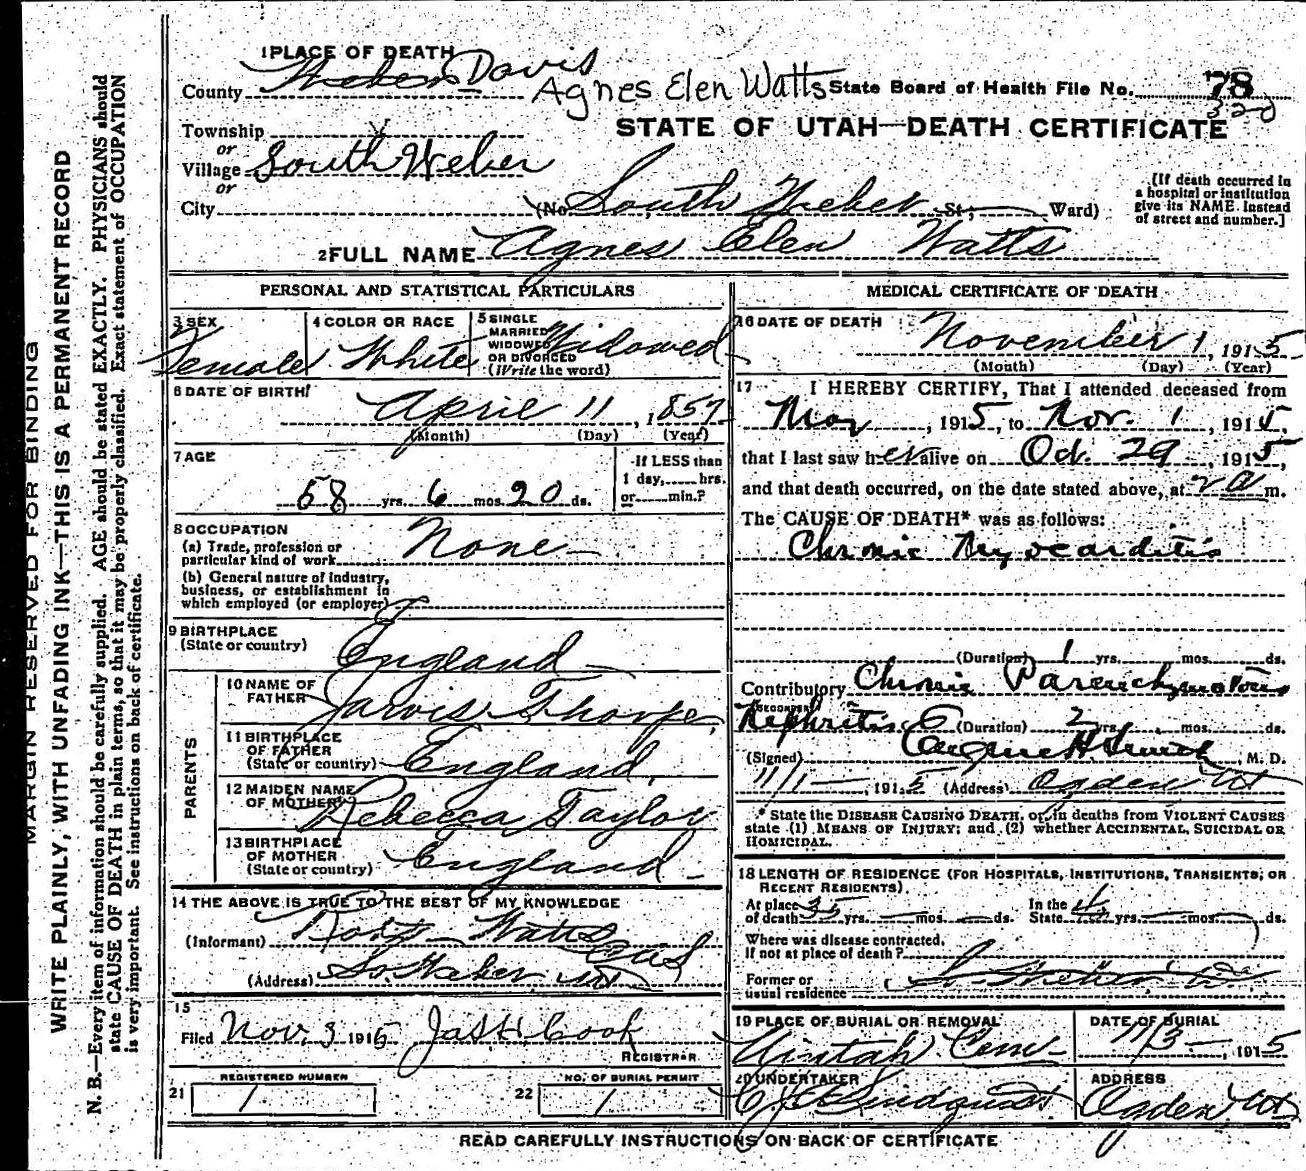 1 PLACE OF DEATH
County Weber Davis
Agnes Elen Watts
State Board of Health File No. 78
320
STATE OF UTAH—DEATH CERTIFICATE
Township
or
Village South Weber
or
City (No. South Weber St., Ward)
[If death occurred in
a hospital or institution
give its NAME instead
of street and number.]
2 FULL NAME Agnes Elen Watts
PERSONAL AND STATISTICAL PARTICULARS
3 SEX
Female
4 COLOR OR RACE
White
5 SINGLE
MARRIED
WIDOWED
OR DIVORCED
(Write the word)
Widowed
6 DATE OF BIRTH
April 11, 1857
(Month) (Day) (Year)
7 AGE
58 yrs. 6 mos. 20 ds.
If LESS than
1 day, hrs.
or min.?
8 OCCUPATION
(a) Trade, profession or
particular kind of work
None
(b) General nature of industry,
business, or establishment in
which employed (or employer)
9 BIRTHPLACE
(State or country)
England
PARENTS
10 NAME OF
FATHER
Jarvis Thorpe
11 BIRTHPLACE
OF FATHER
(State or country)
England
12 MAIDEN NAME
OF MOTHER
Rebecca Taylor
13 BIRTHPLACE
OF MOTHER
(State or country)
England
14 THE ABOVE IS TRUE TO THE BEST OF MY KNOWLEDGE
(Informant) Watts
(Address) So. Weber
15
Filed Nov. 3 1915 Jas H. Cook
REGISTRAR
REGISTERED NUMBER
21 1
NO. OF BURIAL PERMIT
22 1
MEDICAL CERTIFICATE OF DEATH
16 DATE OF DEATH
November 1, 1915
(Month) (Day) (Year)
17 I HEREBY CERTIFY, That I attended deceased from
, 1915, to Nov. 1, 1915,
that I last saw her alive on Oct. 29, 1915,
and that death occurred, on the date stated above, at 2 a m.
The CAUSE OF DEATH* was as follows:
Chronic Myocarditis
(Duration) 1 yrs. mos. ds.
Contributory Chronic Parenchymatous
(SECONDARY)
Nephritis (Duration) 2 yrs. mos. ds.
(Signed) Eugene H. M. D.
11/1 1915 (Address) Ogden Ut
* State the DISEASE CAUSING DEATH, or, in deaths from VIOLENT CAUSES
state (1) MEANS OF INJURY; and (2) whether ACCIDENTAL, SUICIDAL OR
HOMICIDAL.
18 LENGTH OF RESIDENCE (FOR HOSPITALS, INSTITUTIONS, TRANSIENTS, OR
RECENT RESIDENTS).
At place
of death 35 yrs. mos. ds.
In the
State yrs. mos. ds.
Where was disease contracted,
if not at place of death?
Former or
usual residence So. Weber
19 PLACE OF BURIAL OR REMOVAL
Uintah Cem
DATE OF BURIAL
11/3, 1915
20 UNDERTAKER
Lindquist
ADDRESS
Ogden Ut
READ CAREFULLY INSTRUCTIONS ON BACK OF CERTIFICATE
MARGIN RESERVED FOR BINDING
WRITE PLAINLY, WITH UNFADING INK—THIS IS A PERMANENT RECORD
N. B.—Every item of information should be carefully supplied. AGE should be stated EXACTLY. PHYSICIANS should
state CAUSE OF DEATH in plain terms, so that it may be properly classified. Exact statement of OCCUPATION
is very important. See instructions on back of certificate.